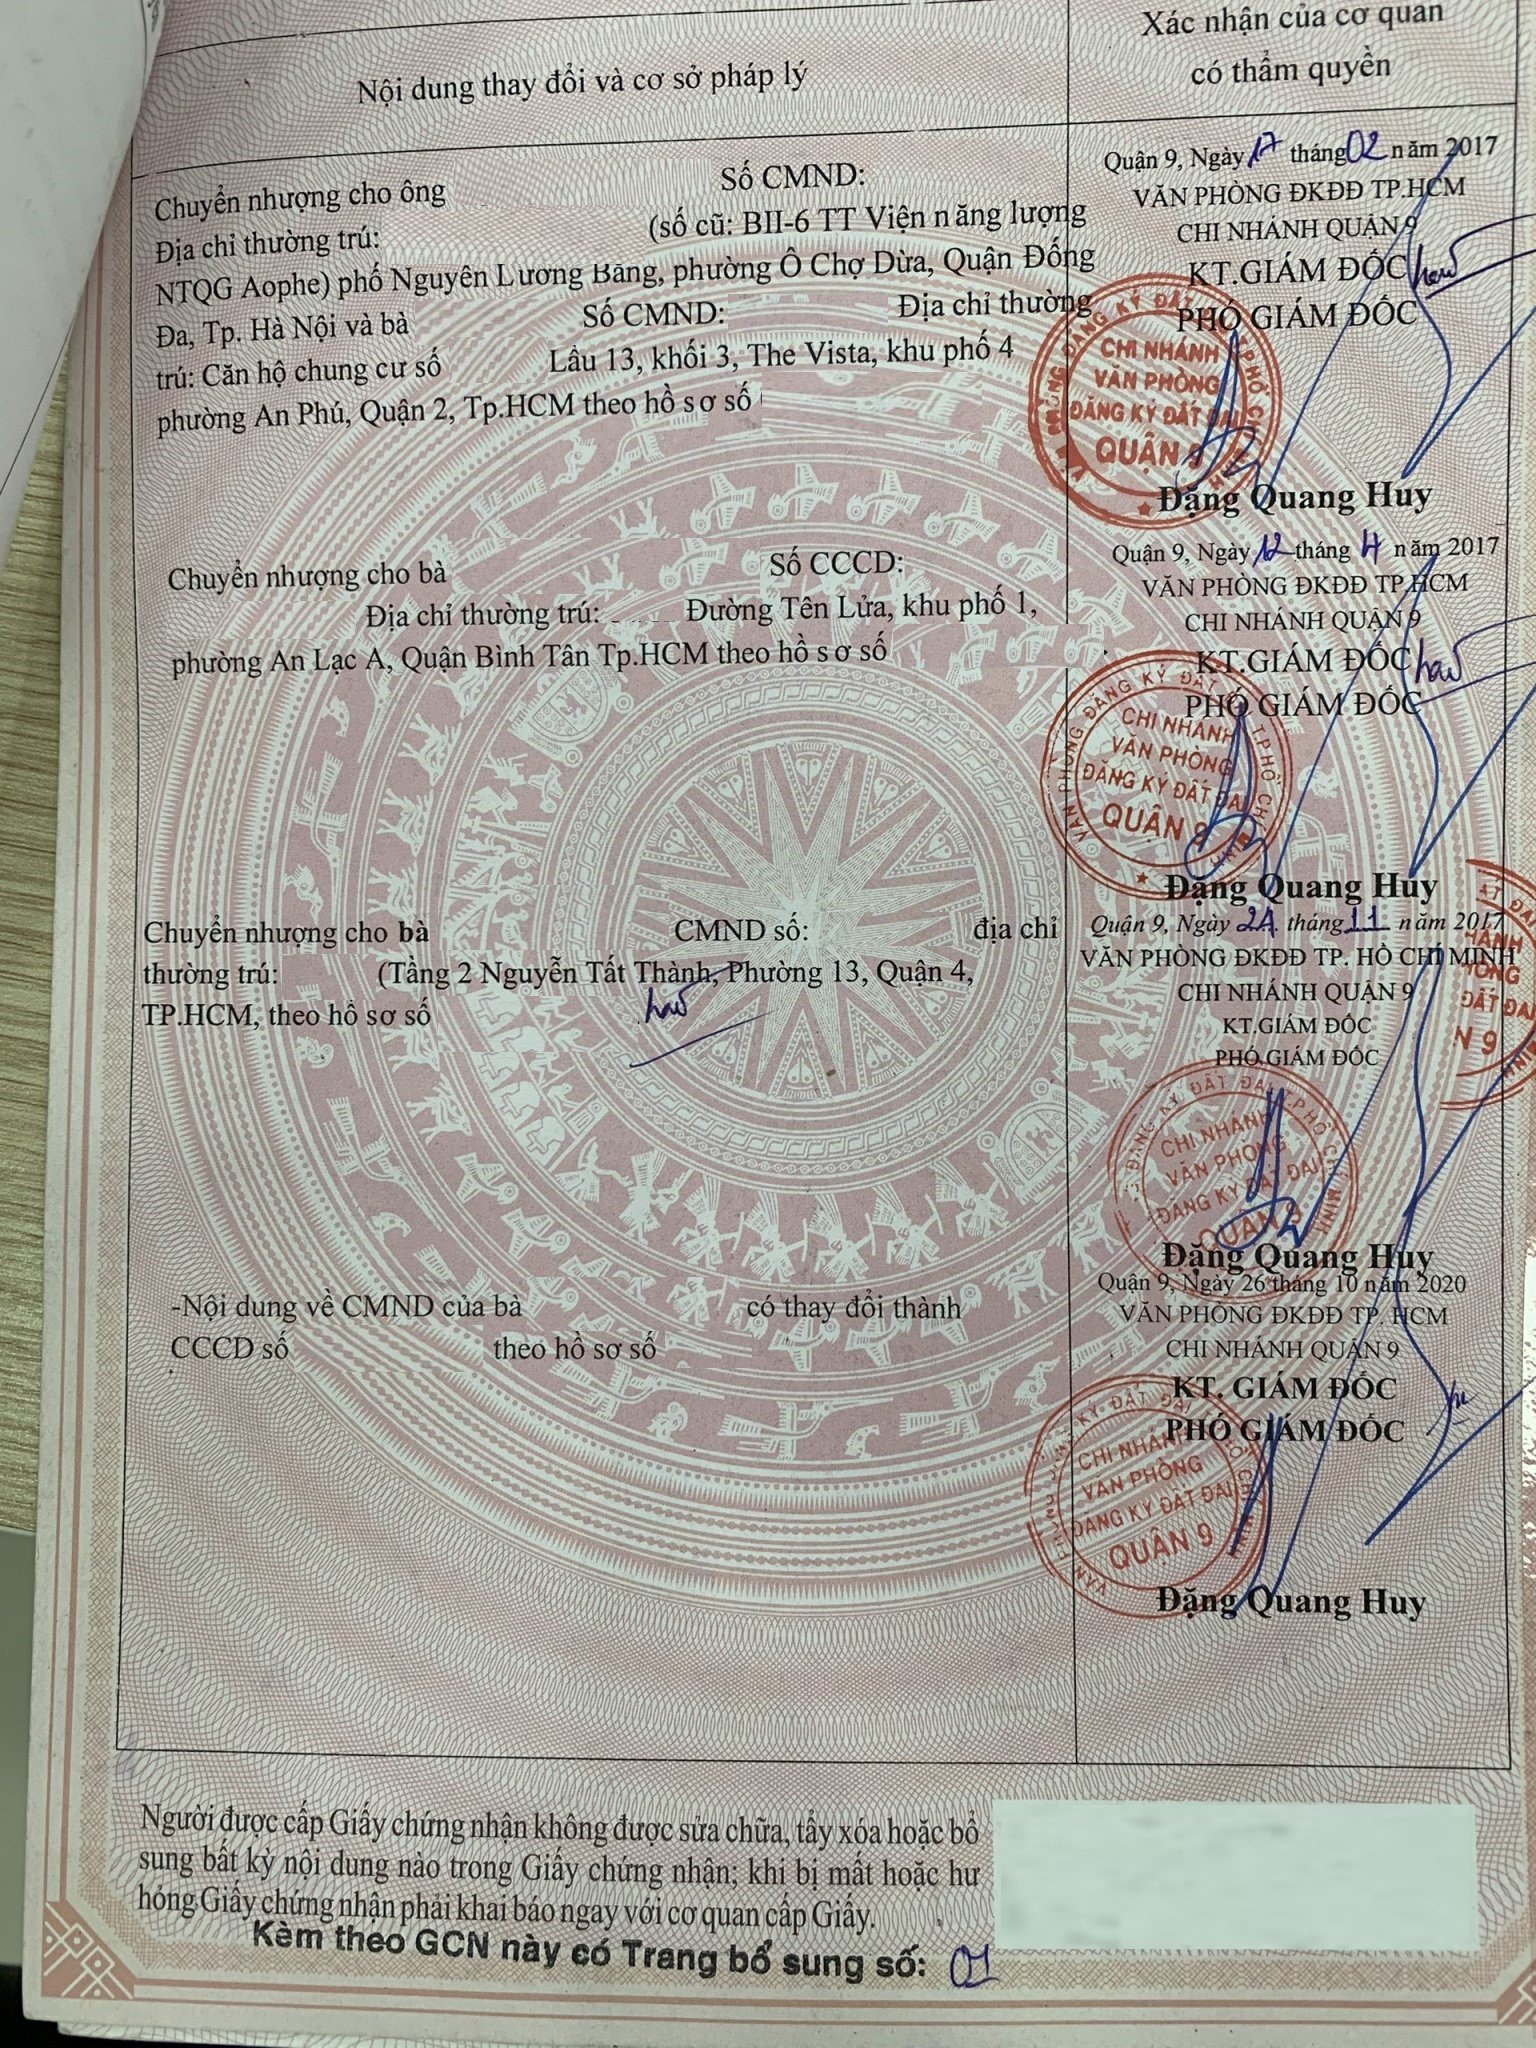 Nội dung thay đổi và cơ sở pháp lý
Xác nhận của cơ quan
có thẩm quyền
Chuyển nhượng cho ông Số CMND:
Địa chỉ thường trú: (số cũ: BII-6 TT Viện năng lượng
NTQG Aophe) phố Nguyên Lương Bằng, phường Ô Chợ Dừa, Quận Đống
Đa, Tp. Hà Nội và bà Số CMND: Địa chỉ thường
trú: Căn hộ chung cư số Lầu 13, khối 3, The Vista, khu phố 4
phường An Phú, Quận 2, Tp.HCM theo hồ sơ số
Quận 9, Ngày 17 tháng 02 năm 2017
VĂN PHÒNG ĐKĐĐ TP.HCM
CHI NHÁNH QUẬN 9
KT.GIÁM ĐỐC
PHÓ GIÁM ĐỐC
CHI NHÁNH
VĂN PHÒNG
ĐĂNG KÝ ĐẤT ĐAI
QUẬN 9
Đặng Quang Huy
Chuyển nhượng cho bà Số CCCD:
Địa chỉ thường trú: Đường Tên Lửa, khu phố 1,
phường An Lạc A, Quận Bình Tân Tp.HCM theo hồ sơ số
Quận 9, Ngày 12 tháng 4 năm 2017
VĂN PHÒNG ĐKĐĐ TP.HCM
CHI NHÁNH QUẬN 9
KT.GIÁM ĐỐC
PHÓ GIÁM ĐỐC
VĂN PHÒNG ĐĂNG KÝ ĐẤT ĐAI T.PHỐ CHÍ MINH
CHI NHÁNH
VĂN PHÒNG
ĐĂNG KÝ ĐẤT ĐAI
QUẬN 9
Đặng Quang Huy
Chuyển nhượng cho bà CMND số: địa chỉ
thường trú: (Tầng 2 Nguyễn Tất Thành, Phường 13, Quận 4,
TP.HCM, theo hồ sơ số
Quận 9, Ngày 24 tháng 11 năm 2017
VĂN PHÒNG ĐKĐĐ TP. HỒ CHÍ MINH
CHI NHÁNH QUẬN 9
KT.GIÁM ĐỐC
PHÓ GIÁM ĐỐC
CHI NHÁNH
VĂN PHÒNG
ĐĂNG KÝ ĐẤT ĐAI
QUẬN 9
Đặng Quang Huy
-Nội dung về CMND của bà có thay đổi thành
CCCD số theo hồ sơ số
Quận 9, Ngày 26 tháng 10 năm 2020
VĂN PHÒNG ĐKĐĐ TP. HCM
CHI NHÁNH QUẬN 9
KT. GIÁM ĐỐC
PHÓ GIÁM ĐỐC
CHI NHÁNH
VĂN PHÒNG
ĐĂNG KÝ ĐẤT ĐAI
QUẬN 9
Đặng Quang Huy
Người được cấp Giấy chứng nhận không được sửa chữa, tẩy xóa hoặc bổ
sung bất kỳ nội dung nào trong Giấy chứng nhận; khi bị mất hoặc hư
hỏng Giấy chứng nhận phải khai báo ngay với cơ quan cấp Giấy.
Kèm theo GCN này có Trang bổ sung số: 01